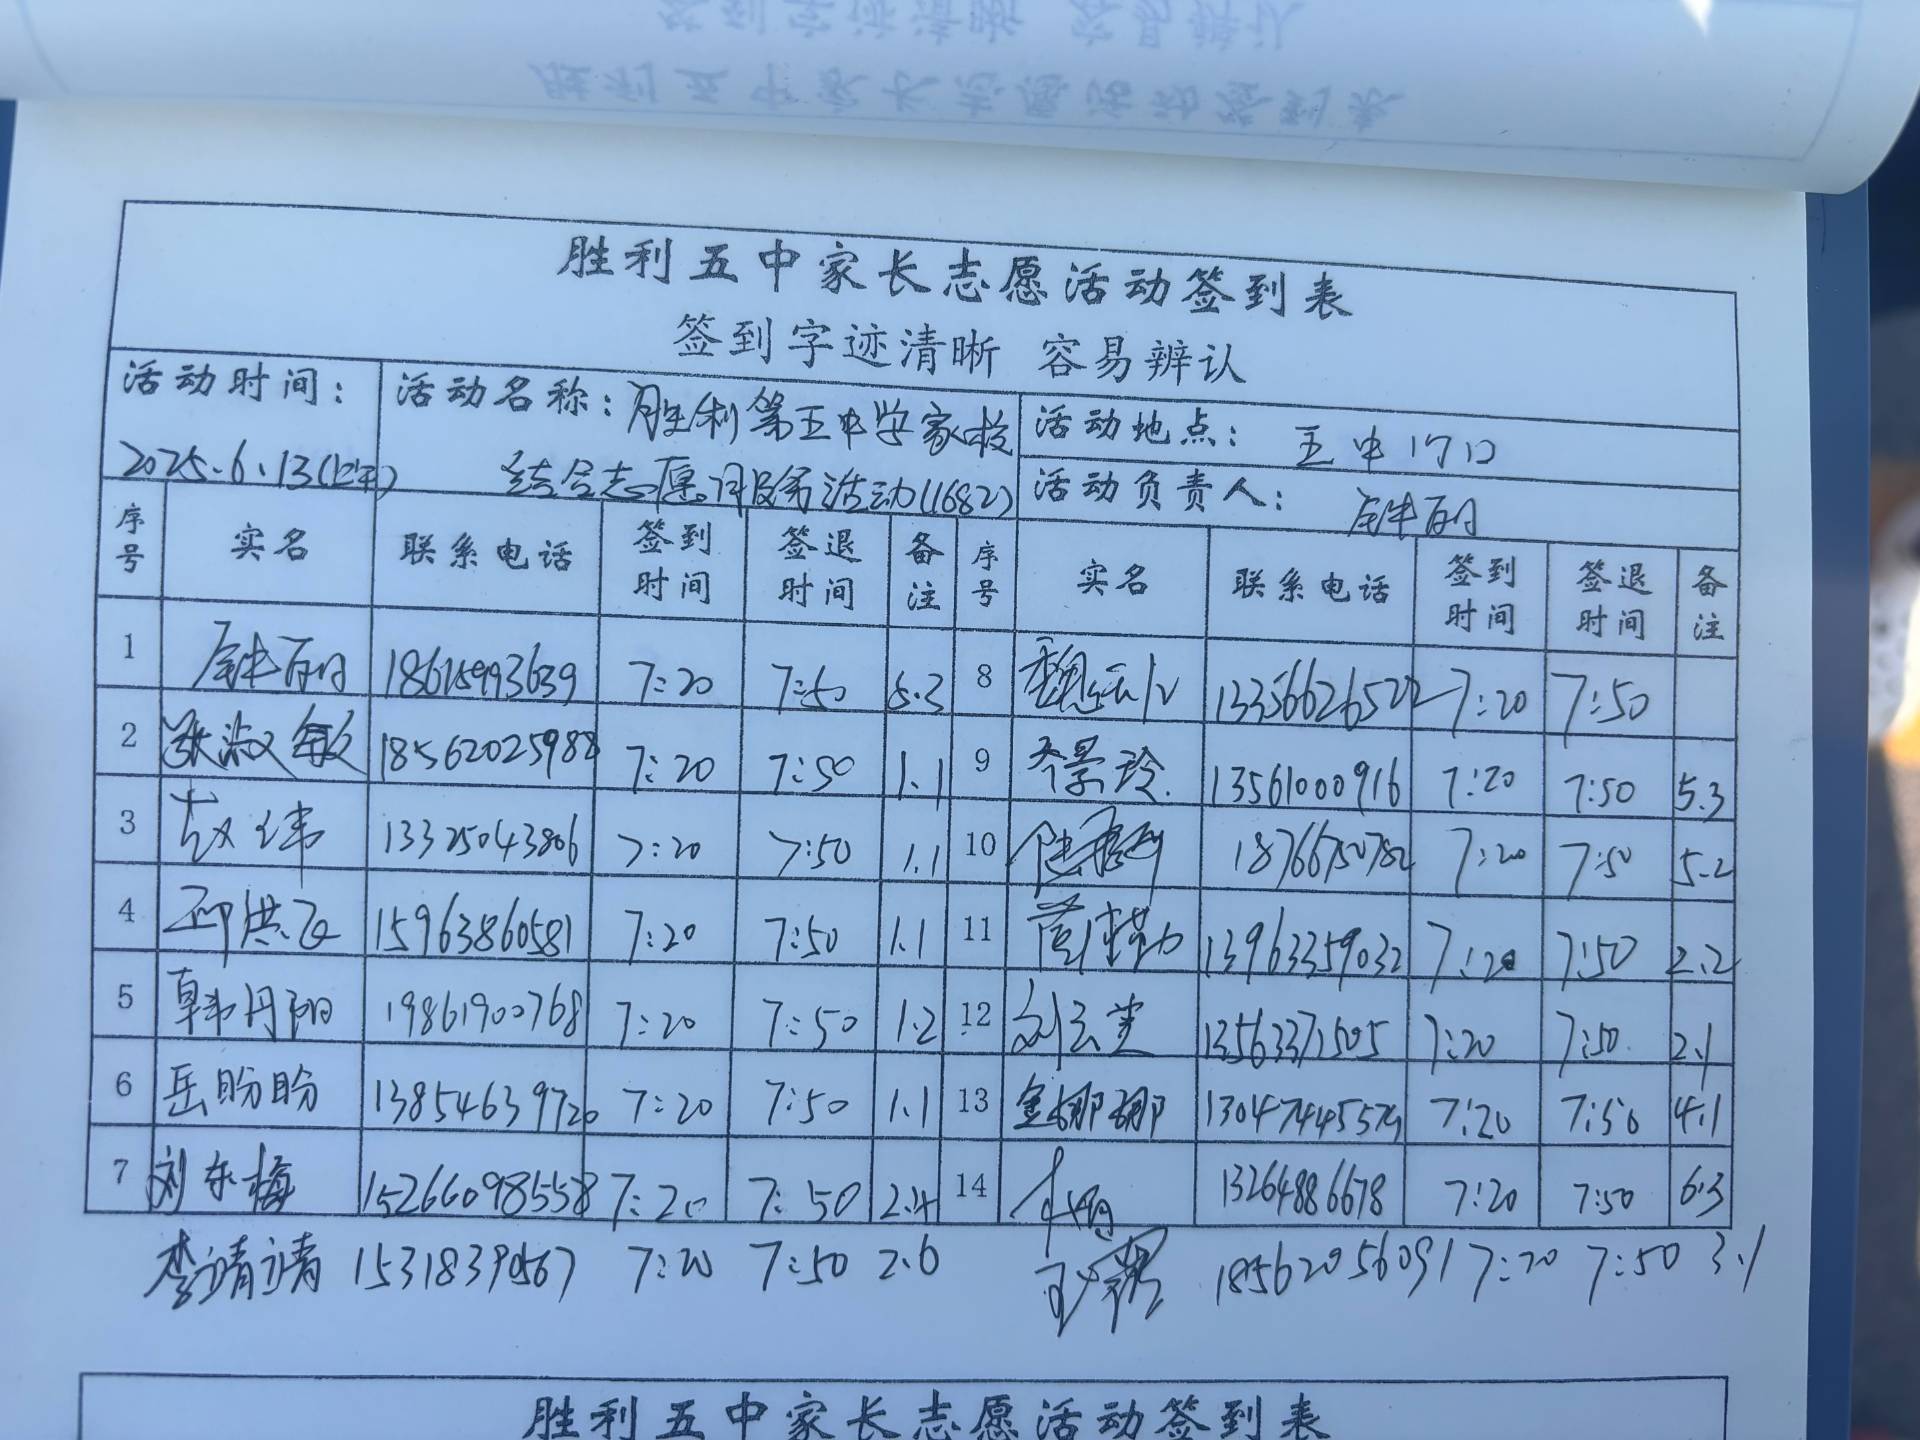 胜利五中家长志愿活动签到表
签到字迹清晰 容易辨认
活动时间: 活动名称:胜利第五中学家校 活动地点: 五中门口
2025.6.13(上午) 结合志愿服务活动(1682) 活动负责人:
序号 实名 联系电话 签到时间 签退时间 备注 序号 实名 联系电话 签到时间 签退时间 备注
1 7:20 7:50 5.3 8 7:20 7:50
2 张淑敏 18562025988 7:20 7:50 1.1 9 齐景玲 13561000916 7:20 7:50 5.3
3 赵伟 13325043806 7:20 7:50 1.1 10 18766750782 7:20 7:50 5.2
4 邱洪飞 15963860581 7:20 7:50 1.1 11 13963359032 7:20 7:50 2.2
5 韩丹阳 19861900768 7:20 7:50 1.2 12 刘云堂 13563371505 7:20 7:50 2.1
6 岳盼盼 13854639720 7:20 7:50 1.1 13 金娜娜 13047445579 7:20 7:50 4.1
7 刘东梅 15266098558 7:20 7:50 2.4 14 13264886678 7:20 7:50 6.3
李请请 15318390567 7:20 7:50 2.6 18562056091 7:20 7:50 3.1
胜利五中家长志愿活动签到表